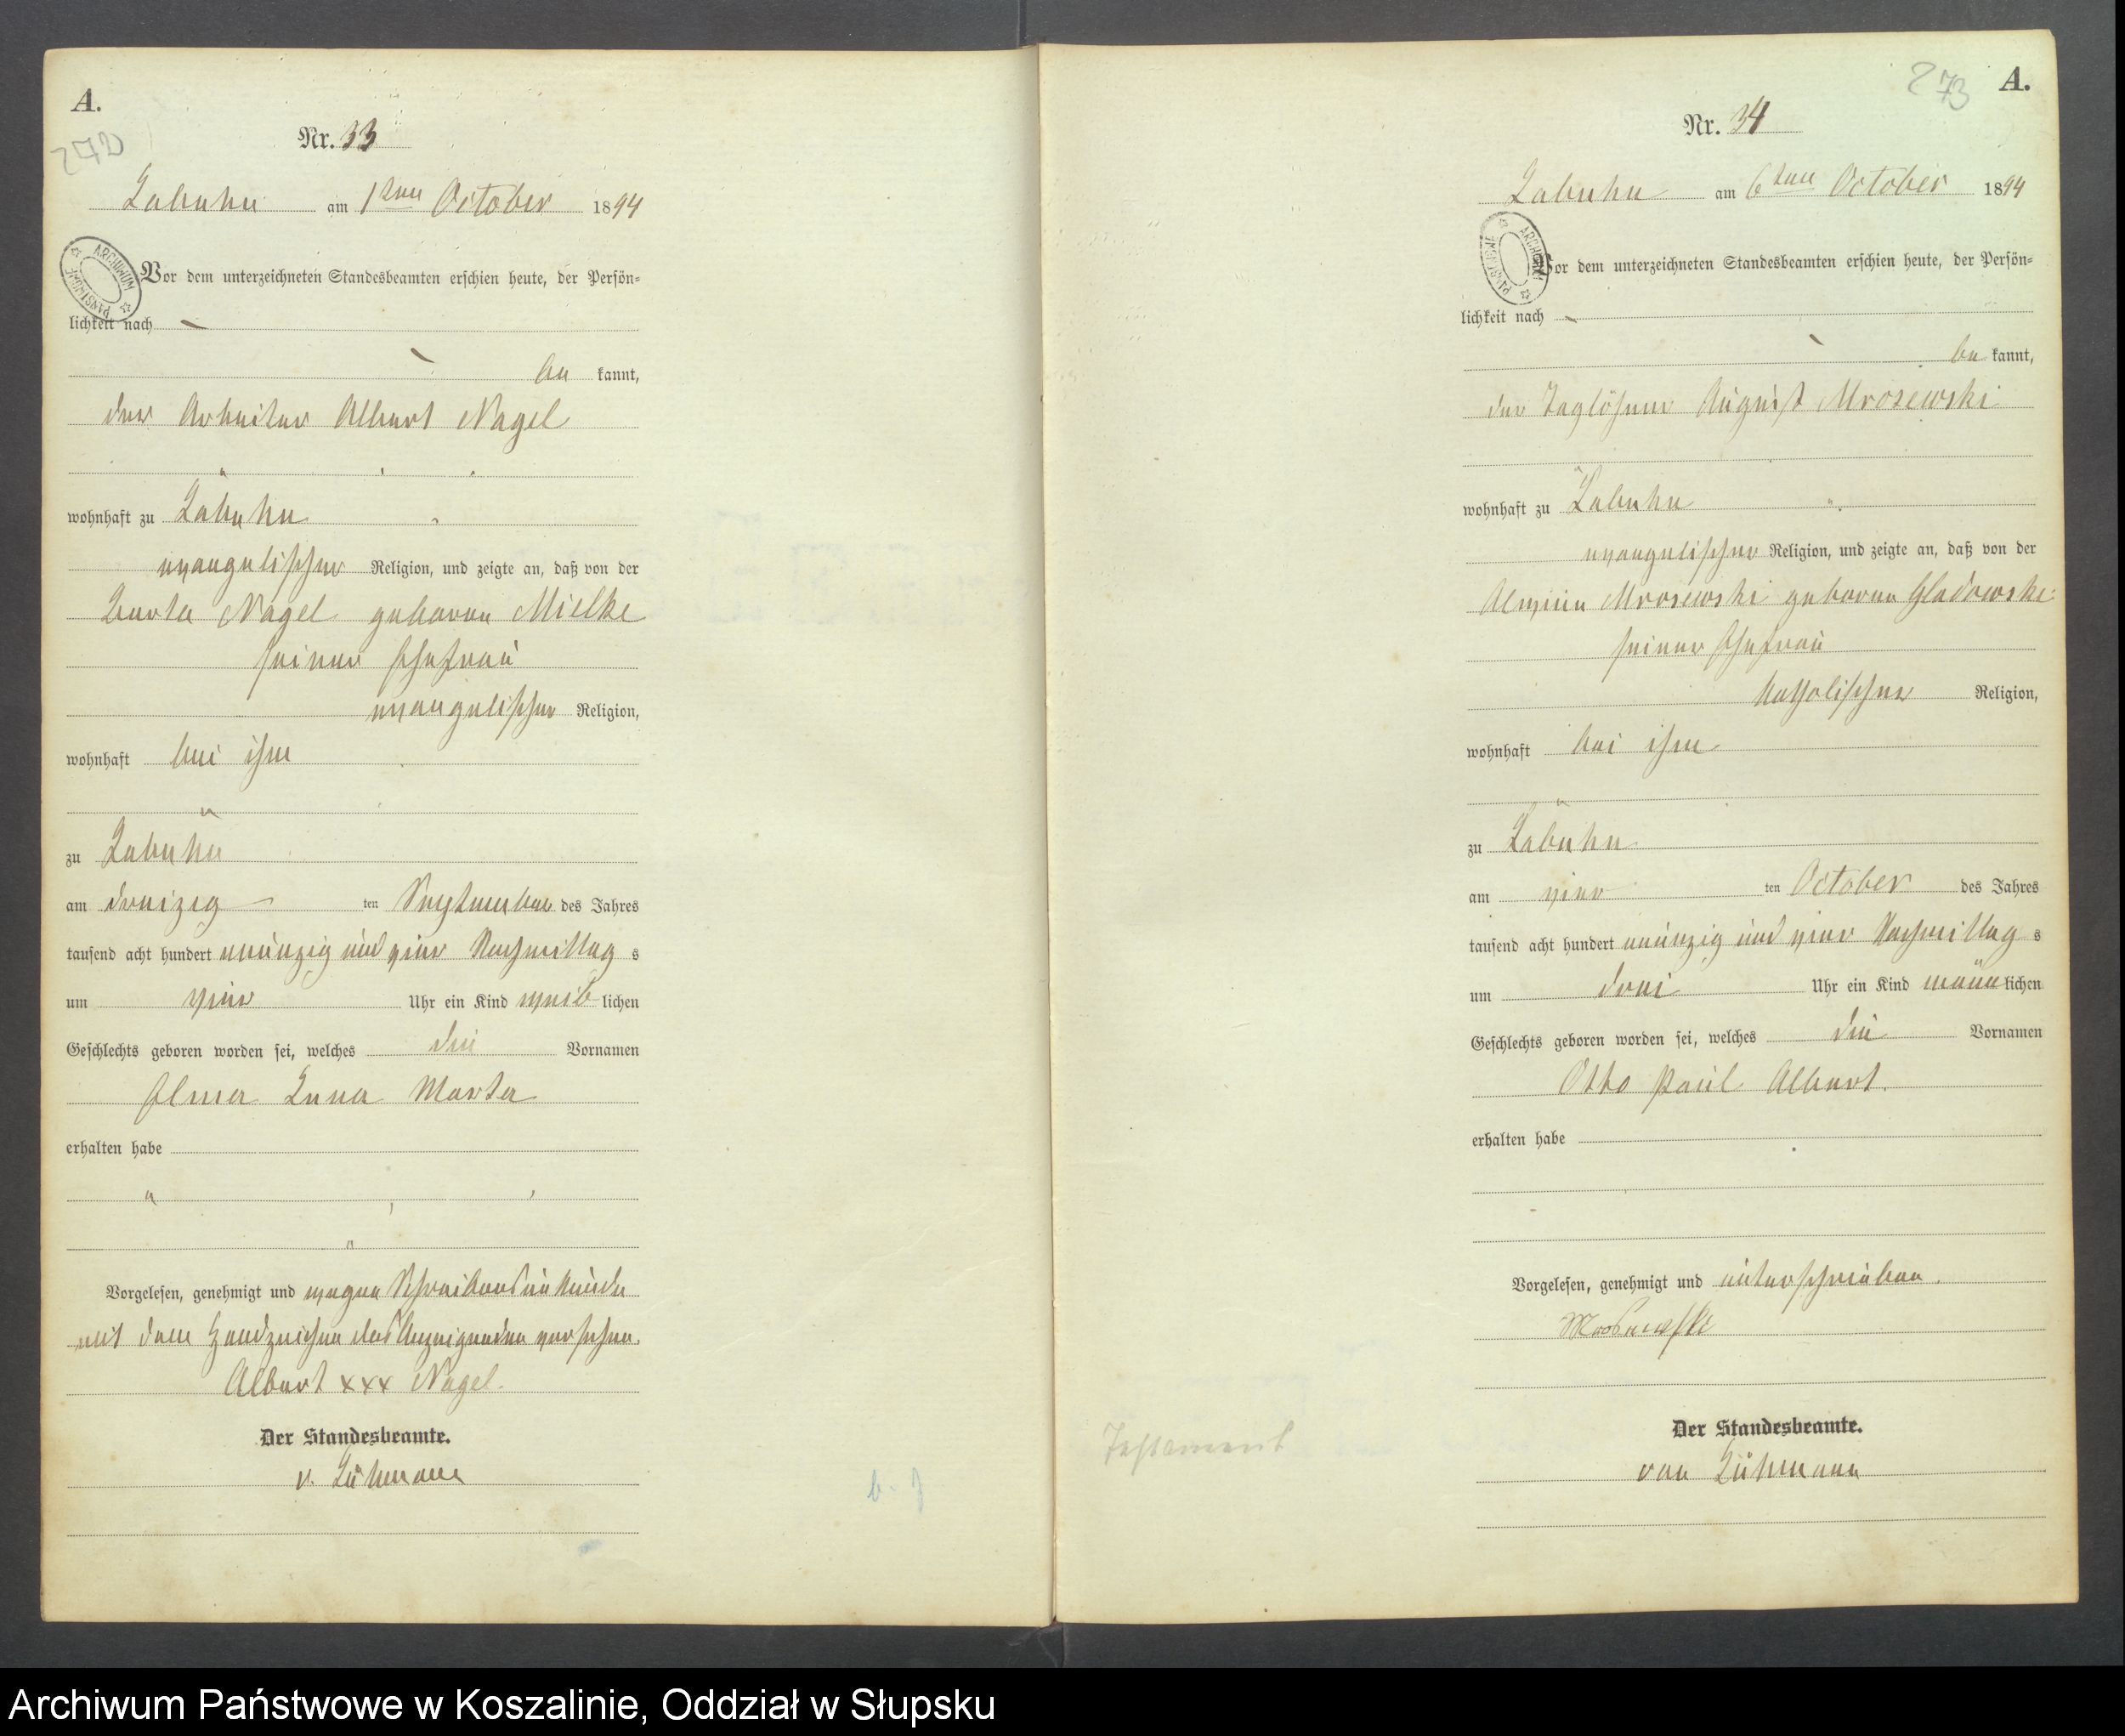 A.
272
Nr. 33
Labuhn am 1ten October 1894
ARCHIWUM PAŃSTWOWE
Vor dem unterzeichneten Standesbeamten erschien heute, der Persön-
lichkeit nach
be kannt,
der Arbeiter Albert Nagel
wohnhaft zu Labuhn
evangelischer Religion, und zeigte an, daß von der
Berta Nagel geboren Mielke
seiner Ehefrau
evangelischer Religion,
wohnhaft bei ihm
zu Labuhn
am dreizig ten September des Jahres
tausend acht hundert neunzig und vier Nachmittag s
um vier Uhr ein Kind weib lichen
Geschlechts geboren worden sei, welches die Vornamen
Elma Lena Marta
erhalten habe
Vorgelesen, genehmigt und wegen Schreibensunkunde
mit dem Handzeichen des Anzeigenden versehen.
Albert xxx Nagel.
Der Standesbeamte.
v. Lühmann
b-f
A.
273
Nr. 34
Labuhn am 6ten October 1894
ARCHIWUM PAŃSTWOWE
Vor dem unterzeichneten Standesbeamten erschien heute, der Persön-
lichkeit nach
be kannt,
der Taglöhner August Mrosewski
wohnhaft zu Labuhn
evangelischer Religion, und zeigte an, daß von der
Mrosewski geboren Gladowske
seiner Ehefrau
katholischer Religion,
wohnhaft bei ihm
zu Labuhn
am vier ten October des Jahres
tausend acht hundert neunzig und vier Nachmittag s
um drei Uhr ein Kind männ lichen
Geschlechts geboren worden sei, welches die Vornamen
Otto Paul Albert.
erhalten habe
Vorgelesen, genehmigt und unterschrieben.
Mrosewski
Testament
Der Standesbeamte.
von Lühmann
Archiwum Państwowe w Koszalinie, Oddział w Słupsku